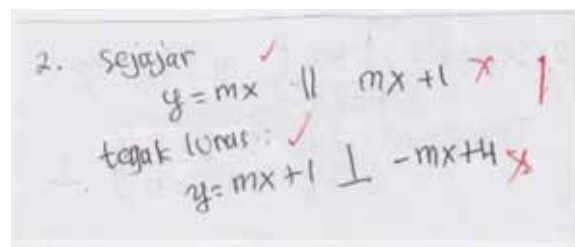 2. Sejajar ✓
y = mx || mx + 1 x 1
tegak lurus : ✓
y = mx + 1 ⊥ -mx + 4 x